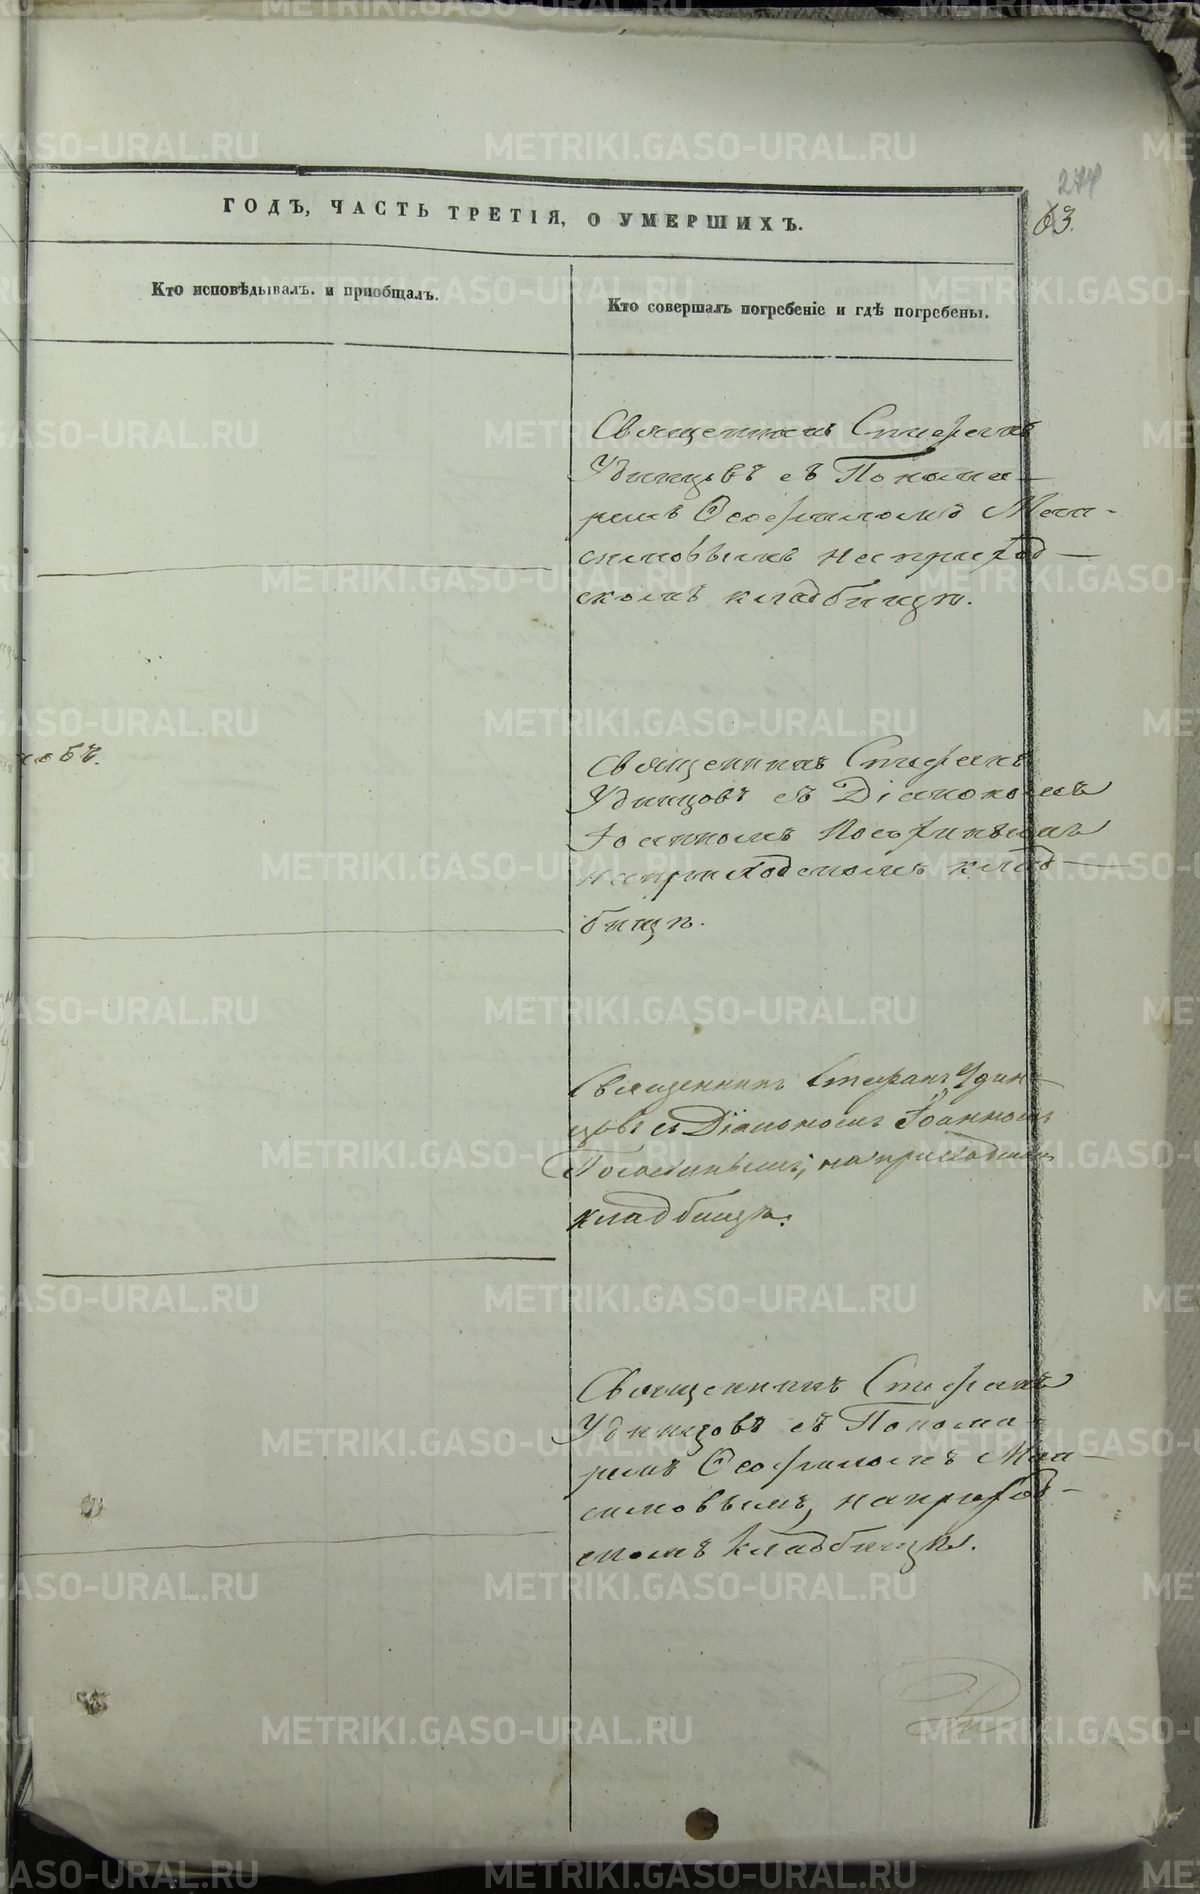 274
63.
ГОДЪ, ЧАСТЬ ТРЕТІЯ, О УМЕРШИХЪ.
Кто исповѣдывалъ и пріобщалъ.
Кто совершалъ погребеніе и гдѣ погребены.
Священникъ Стефанъ
Удинцовъ съ Понома-
ремъ Ѳеофиломъ Мак-
симовымъ на приход-
скомъ кладбищѣ.
Священникъ Стефанъ
Удинцовъ съ Діакономъ
Іоанномъ
на приходскомъ клад-
бищѣ.
Священникъ Стефанъ Удин-
цовъ съ Діакономъ Іоанномъ
на приходскомъ
кладбищѣ.
Священникъ Стефанъ
Удинцовъ съ Понома-
ремъ Ѳеофиломъ Мак-
симовымъ, на приход-
скомъ кладбищѣ.
METRIKI.GASO-URAL.RU